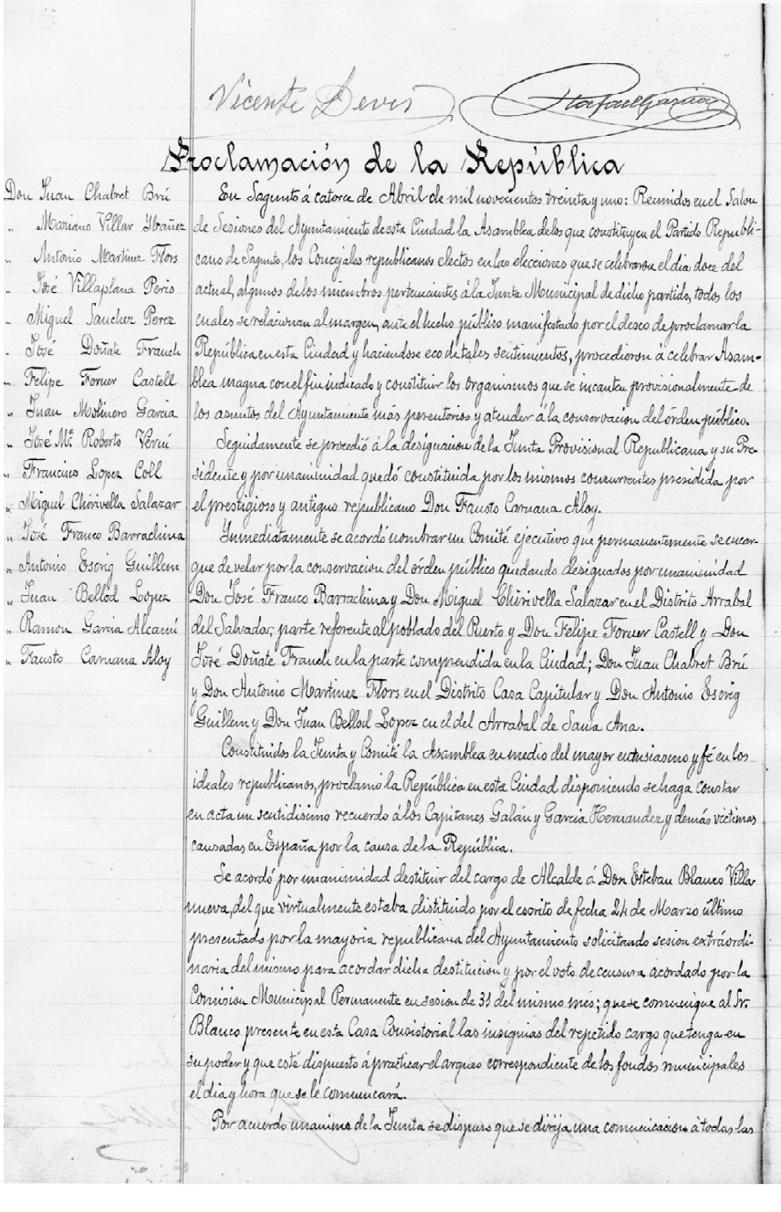 Vicente Devis
Rafael Garcia
Proclamación de la República
Don Juan Chabret Brú
" Mariano Villar Ybañez
" Antonio Martinez Flors
" José Villaplana Peris
" Miguel Sanchez Perez
" José Doñate Franch
" Felipe Forner Castell
" Juan Molinero Garcia
" José Mª Roberto Verni
" Francisco Lopez Coll
" Miguel Chirivella Salazar
" José Franco Barrachina
" Antonio Escrig Guillem
" Juan Bellod Lopez
" Ramon Garcia Alcamí
" Fausto Caruana Aloy
En Sagunto á catorce de Abril de mil novecientos treinta y uno: Reunidos en el Salon
de Sesiones del Ayuntamiento de esta Ciudad la Asamblea de los que constituyen el Partido Republi-
cano de Sagunto, los Concejales republicanos electos en las elecciones que se celebraron el dia doce del
actual, algunos de los miembros pertenecientes á la Junta Municipal de dicho partido, todos los
cuales se relacionan al margen, ante el hecho público manifestado por el deseo de proclamar la
República en esta Ciudad y haciendose eco de tales sentimientos, procedieron a celebrar Asam-
blea magna con el fin indicado y constituir los organismos que se incauten provisionalmente de
los asuntos del Ayuntamiento más perentorios y atender á la conservacion del órden público.
Seguidamente se procedió á la designacion de la Junta Provisional Republicana y su Pre-
sidente y por unanimidad quedó constituida por los mismos concurrentes presidida por
el prestigioso y antiguo republicano Don Fausto Caruana Aloy.
Inmediatamente se acordó nombrar un Comité ejecutivo que permanentemente se encar-
gue de velar por la conservacion del órden público quedando designados por unanimidad
Don José Franco Barrachina y Don Miguel Chirivella Salazar en el Distrito Arrabal
del Salvador, parte referente al poblado del Puerto y Don Felipe Forner Castell y Don
José Doñate Franch en la parte comprendida en la Ciudad; Don Juan Chabret Brú
y Don Antonio Martinez Flors en el Distrito Casa Capitular y Don Antonio Escrig
Guillem y Don Juan Bellod Lopez en el del Arrabal de Santa Ana.
Constituidos la Junta y Comité la Asamblea en medio del mayor entusiasmo y fé en los
ideales republicanos, proclamó la República en esta Ciudad disponiendo se haga constar
en acta un sentidisimo recuerdo á los Capitanes Galán y Garcia Hernandez y demás victimas
causadas en España por la causa de la República.
Se acordó por unanimidad destituir del cargo de Alcalde á Don Esteban Blanco Villa-
nueva, del que virtualmente estaba distituido por el escrito de fecha 24 de Marzo último
presentado por la mayoria republicana del Ayuntamiento solicitando sesion extraordi-
naria del mismo para acordar dicha destitucion y por el voto de censura acordado por la
Comision Municipal Permanente en sesion de 31 del mismo més; que se comunique al Sr.
Blanco presente en esta Casa Consistorial las insignias del repetido cargo que tenga en
su poder y que esté dispuesto á practicar el arqueo correspondiente de los fondos municipales
el dia y hora que se le comunicará.
Por acuerdo unanime de la Junta se dispuso que se dirija una comunicacion á todas las